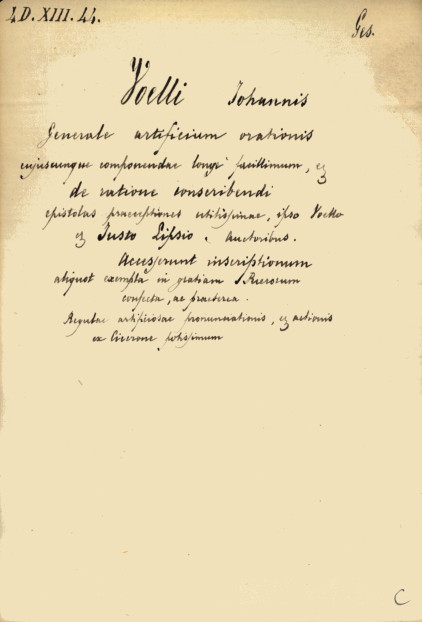 4 D. XIII. 44.
Ges.
Voelli Johannis
Generale artificium orationis
cujuscunque componendae longè facillimum, &
de ratione conscribendi
epistolas praeceptiones utilissimae, ipso Voello
& Justo Lipsio. Auctoribus.
Accesserunt inscriptionum
aliquot exempla in gratiam
confecta, ac praeterea.
Regulae artificiosae pronunciationis, & actionis
ex Cicerone potissimum
C